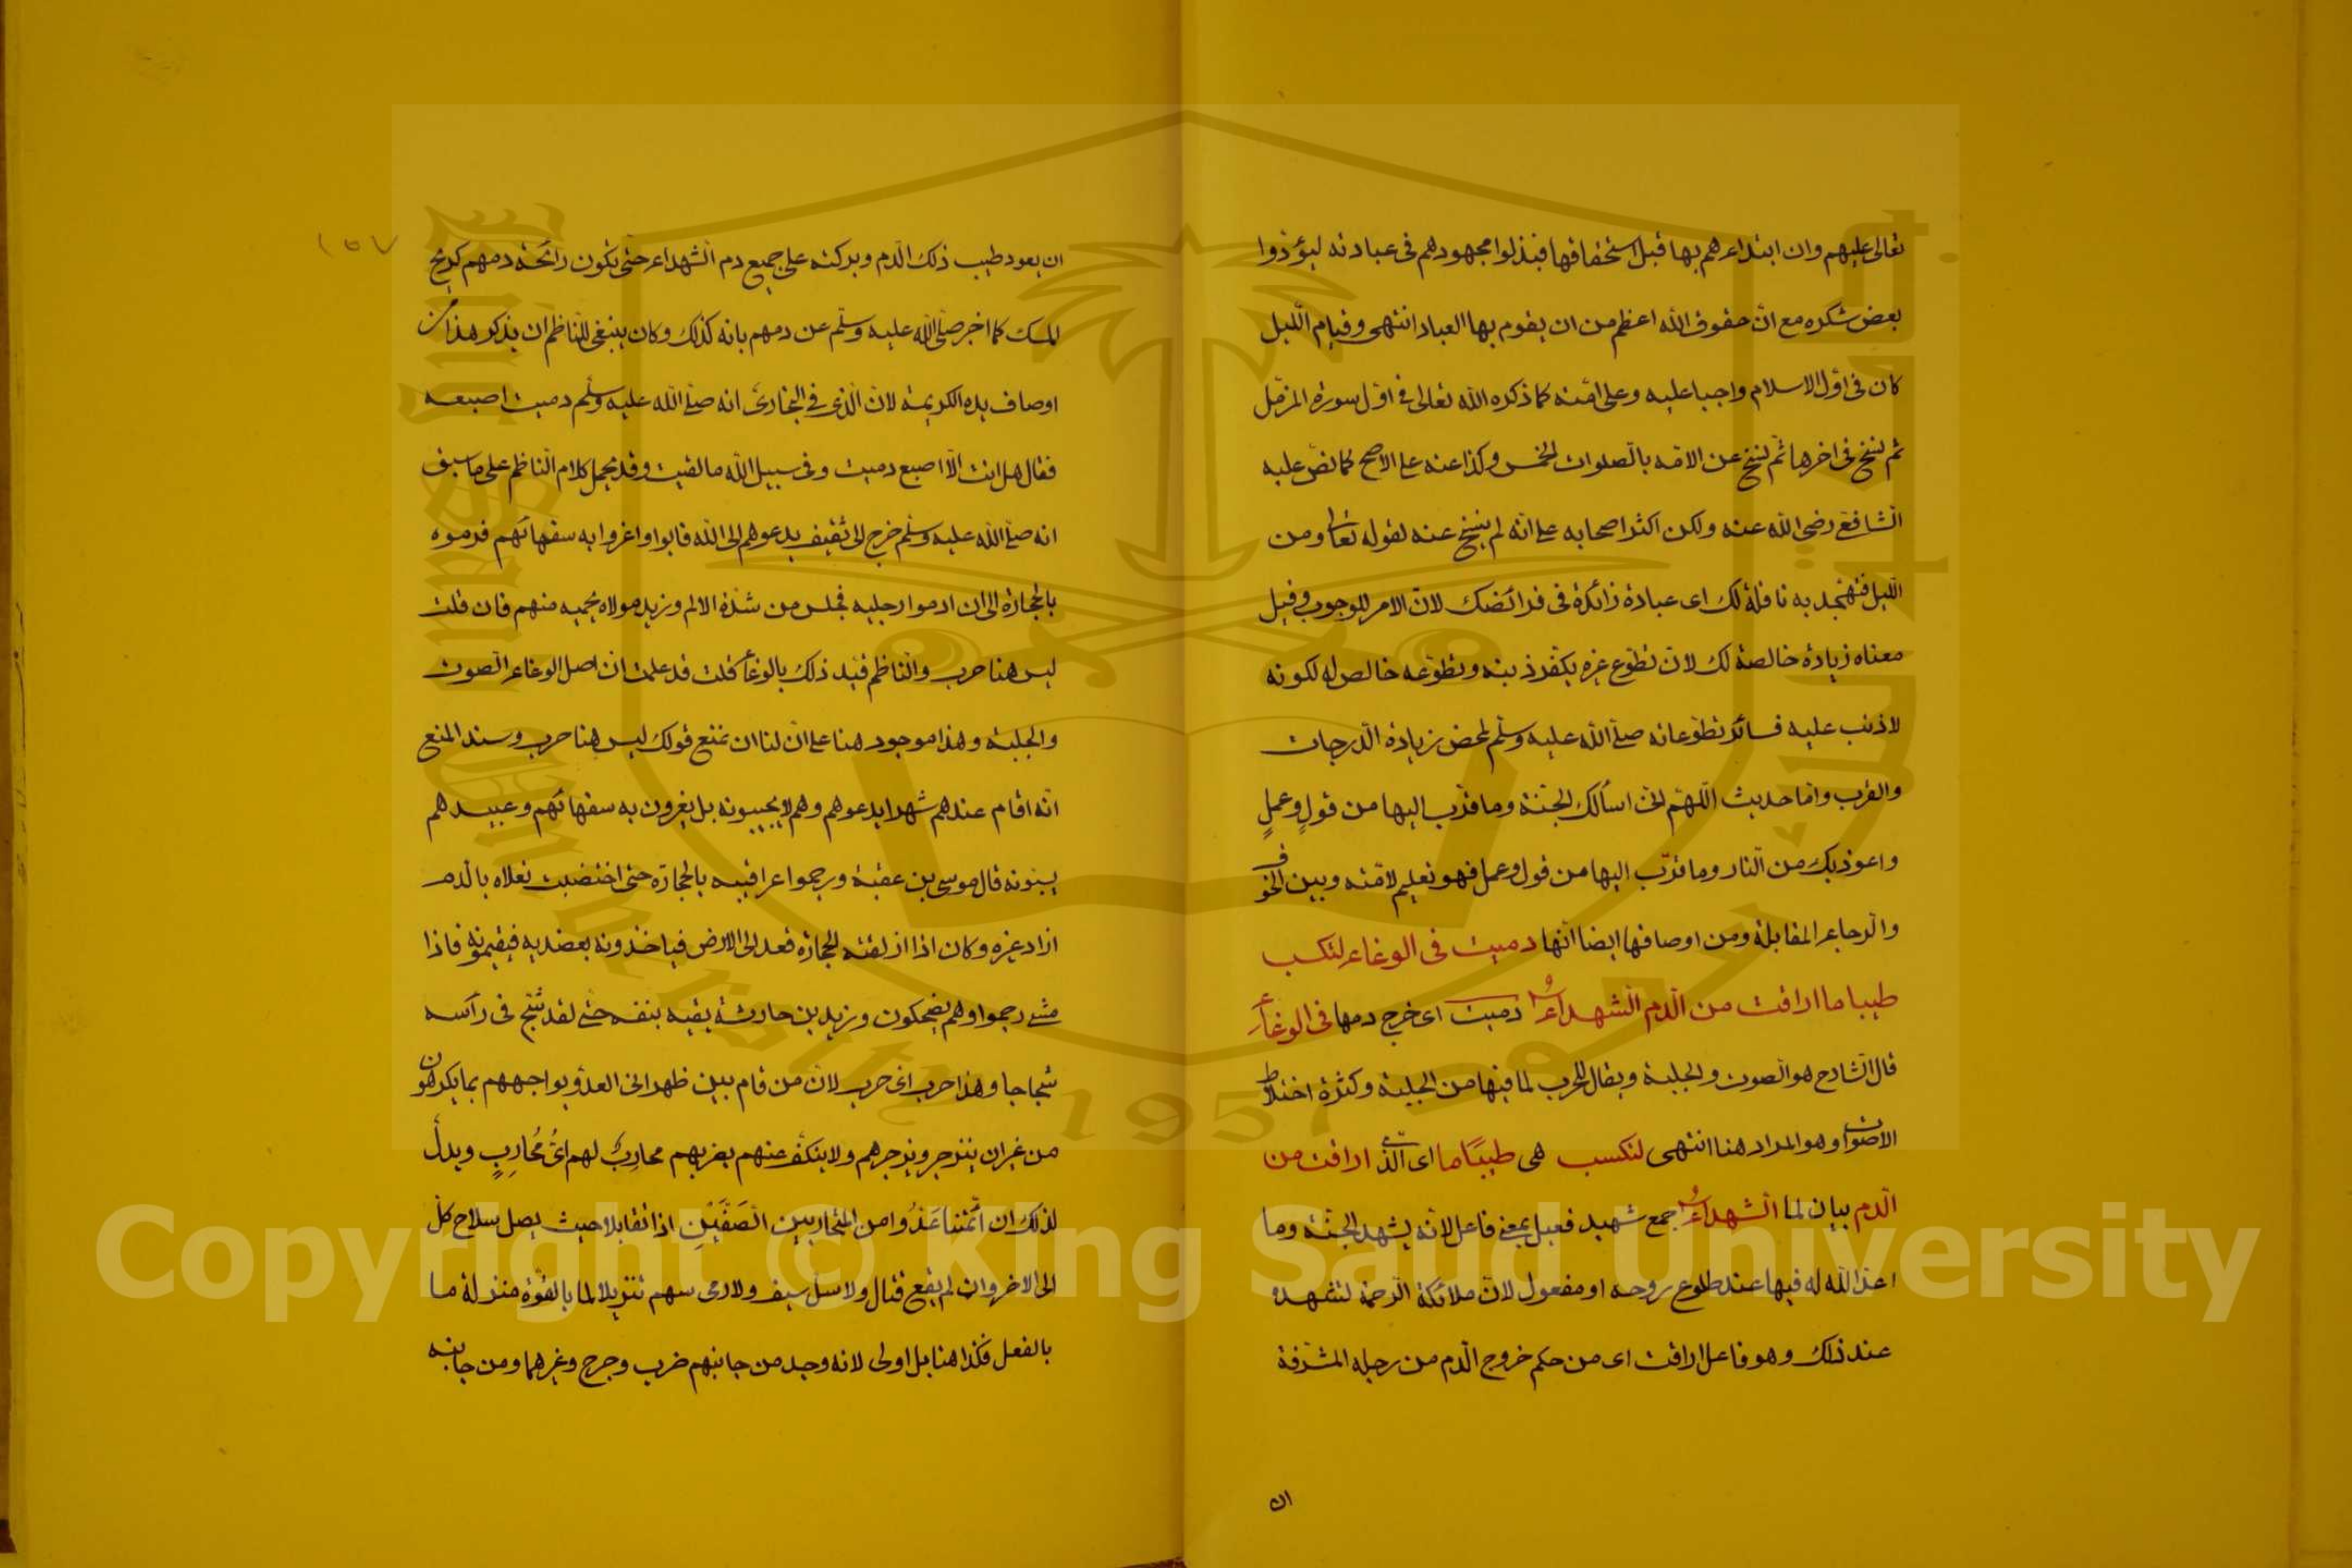 تعالى عليهم وان ابتداءهم بها قبل استحقاقها فبذلوا مجهودهم فى عبادته ليؤدوا
بعض شكره مع ان حقوق الله اعظم من ان يقوم بها العباد انتهى وقيام الليل
كان فى اول الاسلام واجبا عليه وعلى امته كما ذكره الله تعالى فى اول سورة المزمل
ثم نسخ فى اخرها ثم نسخ عن الامة بالصلوات الخمس وكذا عنه على الاصح كما نص عليه
الشافعى رضى الله عنه ولكن اكثر اصحابه على انه لم ينسخ عنه لقوله تعالى ومن
الليل فتهجد به نافلة لك اى عبادة زائدة فى فرائضك لان الامر للوجوب وقيل
معناه زيادة خالصة لك لان تطوع غيره يكفر ذنبه وتطوعه خالص له لكونه
لا ذنب عليه فسائر تطوعاته صلى الله عليه وسلم لمحض زيادة الدرجات
والقرب واما حديث اللهم انى اسألك الجنة وما قرب اليها من قولٍ وعملٍ
واعوذ بك من النار وما قرّب اليها من قول وعمل فهو تعليم لامته وبين الخوف
والرجاء المقابلة ومن اوصافها ايضا انها دميت فى الوغاء لتكسب
طيبا ما اراقت من الدم الشهداءُ دميت اى خرج دمها فى الوغاء
قال الشارح هو الصوت والجلبة ويقال للحرب لما فيها من الجلبة وكثرة اختلاط
الاصوات وهو المراد هنا انتهى لتكسب هى طيبًا ما اى الذى اراقت من
الدم بيان لما الشهداءُ جمع شهيد فعيل بمعنى فاعل لانه يشهد الجنة وما
اعد الله له فيها عند طلوع روحه او مفعول لان ملائكة الرحمة تشهده
عند ذلك وهو فاعل اراقت اى من حكم خروج الدم من رجله المشرفة
ان
١٥٧
ان يعود طيب ذلك الدم وبركته على جميع دم الشهداء حتى تكون رائحة دمهم كريح
المسك كما اخبر صلى الله عليه وسلم عن دمهم بانه كذلك وكان ينبغى للناظم ان يذكر هذا من
اوصاف يده الكريمة لان الذى فى البخارى انه صلى الله عليه وسلم دميت اصبعه
فقال هل انت الا اصبع دميت وفى سبيل الله ما لقيت وقد يحمل كلام الناظم على ما سبق
انه صلى الله عليه وسلم خرج الى ثقيف يدعوهم الى الله فابوا واغروا به سفهائهم فرموه
بالحجارة الى ان ادموا رجليه فجلس من شدة الالم وزيد مولاه يحميه منهم فان قلت
ليس هنا حرب والناظم قيد ذلك بالوغاء قلت قد علمت ان اصل الوغاء الصوت
والجلبة وهذا موجود هنا على ان لنا ان نمنع قولك ليس هنا حرب وسند المنع
انه اقام عندهم شهرا يدعوهم وهم لا يجيبونه بل يغرون به سفهائهم وعبيدهم
يسبونه قال موسى بن عقبة ورجموا عراقيبه بالحجارة حتى اختضبت نعلاه بالدم
زاد غيره وكان اذا ازلقته الحجارة قعد الى الارض فياخذونه بعضديه فيقيمونه فاذا
مشى رجموا وهم يضحكون وزيد بن حارثة يقيه بنفسه حتى لقد شج فى رأسه
شجاجا وهذا حرب اى حرب لان من قام بين ظهرانى العدو يواجههم بما يكرهون
من غير ان ينزجر ويزجرهم ولا ينكف عنهم بضربهم محارِبٌ لهم اىُّ مُحارِبٍ ويدل
لذلك ان ائمتنا عَدُّوا من المتحاربين الصَفَّيْنِ اذا تقابلا حيث يصل سلاح كل
الى الاخر وان لم يقع قتال ولا سل سيف ولا رمى سهم تنزيلا لما بالقوة منزلة ما
بالفعل فكذا هنا بل اولى لانه وجد من جانبهم ضرب وجرح وغيرهما ومن جانبه
Copyright © King Saud University
King Saud University
1957